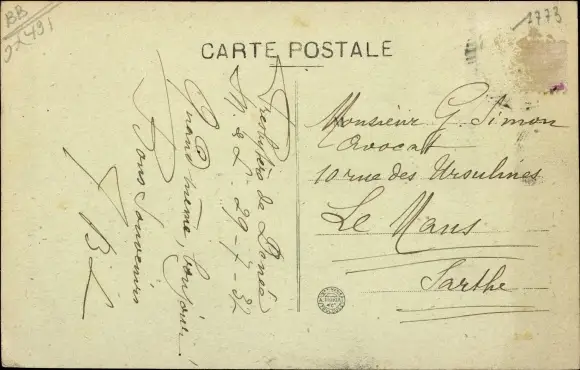 BB
1773
CARTE POSTALE
Presbytère de
M. & L. 29-7-32
Quand même, bonjour!
Bons Souvenirs
BL
Monsieur G. Simon
Avocat
10 rue des Ursulines
Le Mans
Sarthe